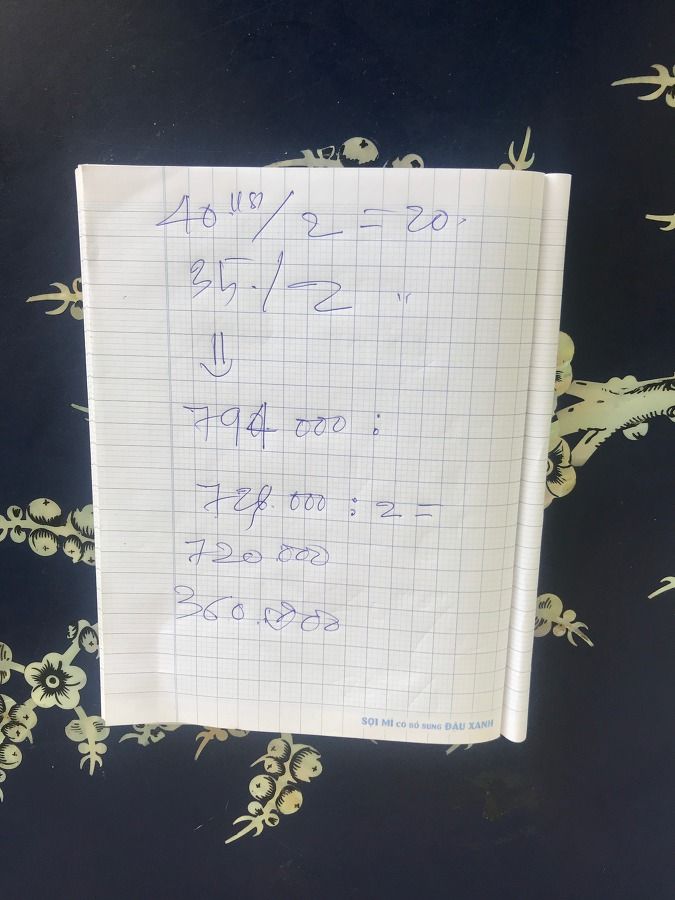 40 usd / 2 = 20.
35./2 "
⇓
794 000 :
728.000 : 2 =
720.000
360.000
SỢI MÌ CÓ BỔ SUNG ĐẬU XANH